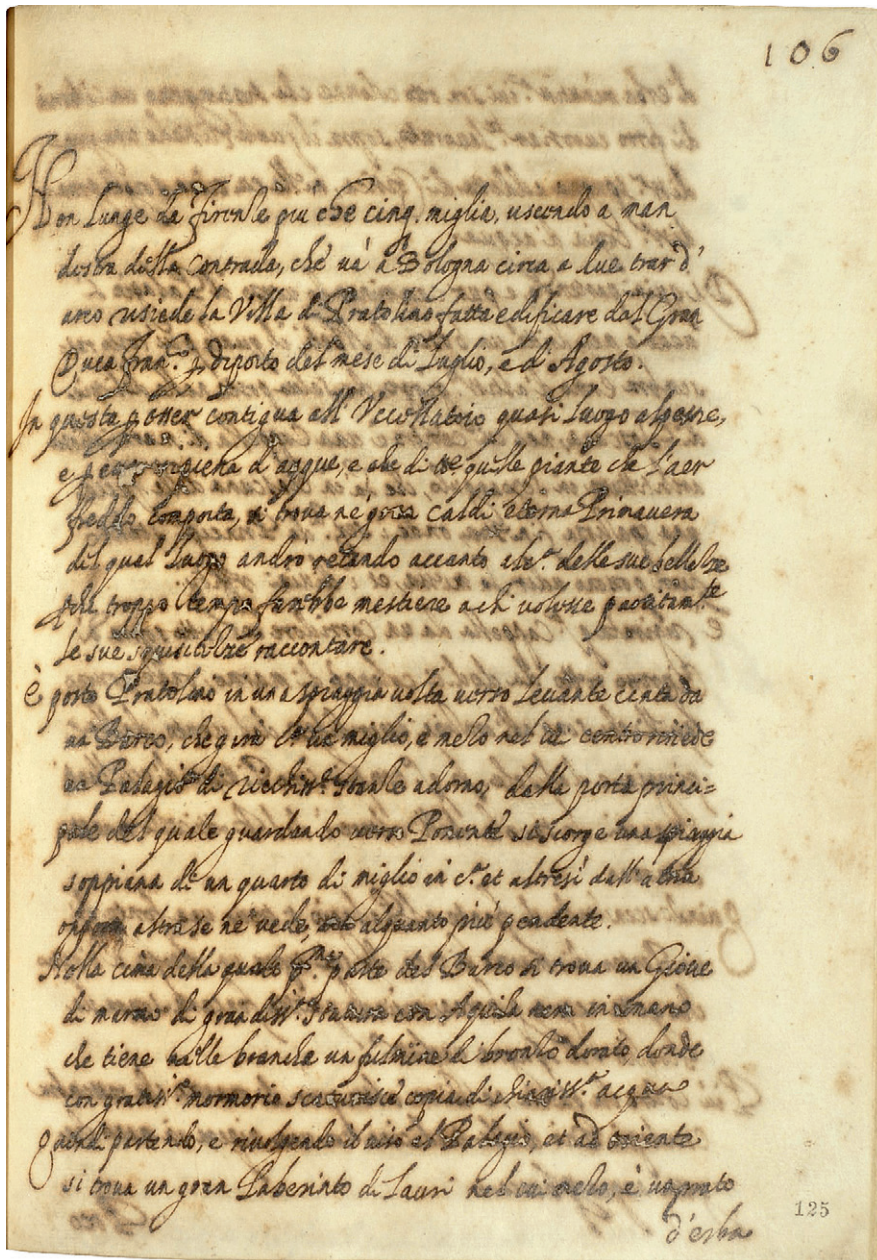 106
Non lunge da Firenze piu che cinq. miglia, uscendo a man
destra della Contrada, che va a Bologna circa a due trar d'
arco risiede la Villa di Pratolino fatta edificare dal Gran
Duca Fran.co p diporto del mese di Luglio, e di Agosto.
In questa p esser contigua all' Uccellatoio quasi luogo alpestre,
e ripiena d'acque, e di quelle piante che l'aer
freddo comporta, si trova ne caldi eterna Primavera
del qual luogo andrò accanto delle sue bellezze
che troppo tempo farebbe mestiere a chi volesse
le sue squisitezze raccontare.
È posto Pratolino in una spiaggia volta verso Levante cinta da
un Barco, che gira c.a un miglio, e mezo nel cui centro risiede
un Palagio di ricchiss.e stanze adorno, dalla porta princi=
pale del quale guardando verso Ponente si scorge una spiaggia
soppiana di un quarto di miglio in c.a et altresì dall'altra
altra se ne vede, alquanto più pendente.
Nella cima della quale p.a parte del Barco si trova un Giove
di marmo di grandiss.a statura con Aquila nera in mano
che tiene nelle branche un fulmine di bronzo dorato, donde
con gratiss.o mormorio scaturisce copia di chiariss.a acqua
Quindi partendo, e rivolgendo il viso al Palagio, et ad oriente
si trova un gran Laberinto di Lauri nel cui mezo, è un prato
d'erba
125